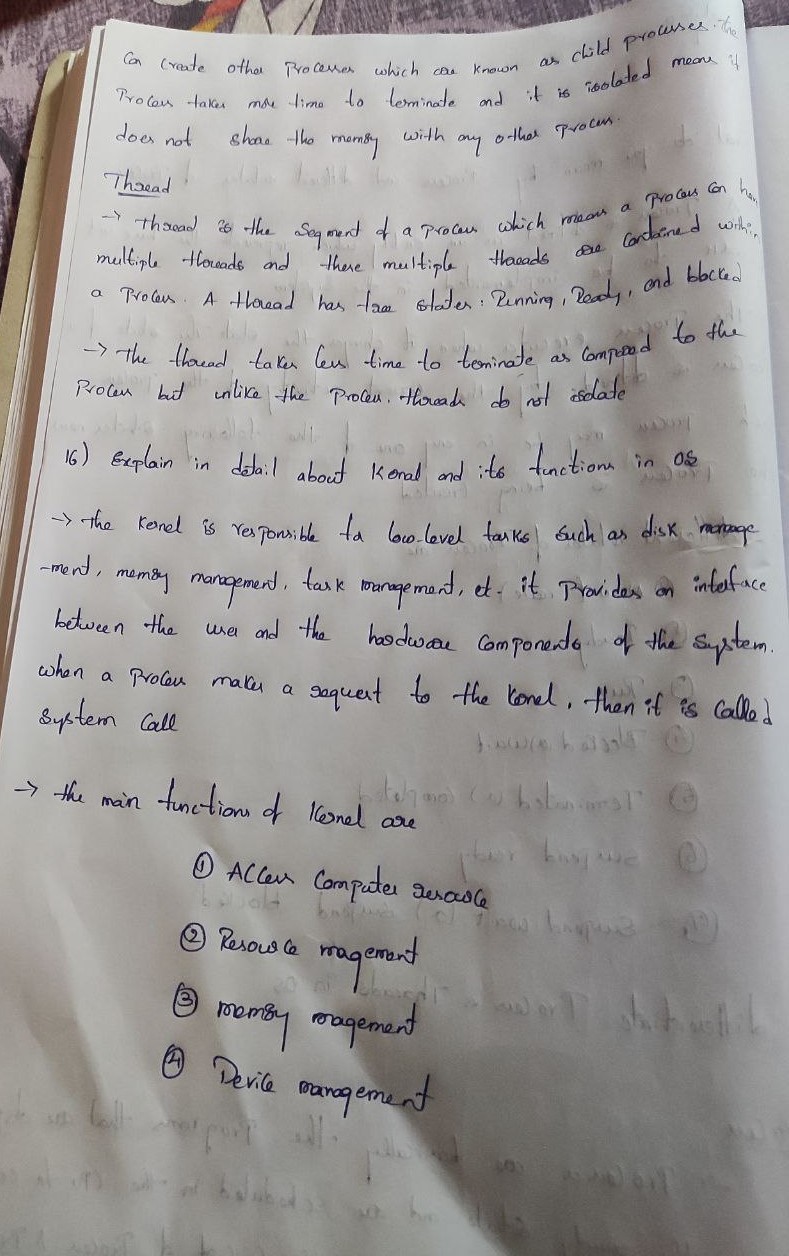 Can Create other Processes which are known as child processes. The
Process takes more time to terminate and it is isolated means it
does not share the memory with any other process.
Thread
→ Thread is the Segment of a process which means a process can have
multiple threads and these multiple threads are contained within
a Process. A thread has three states: Running, Ready, and blocked
→ The thread takes less time to terminate as compared to the
Process but unlike the Process, threads do not isolate
16) Explain in detail about Kernal and its functions in OS
→ the Kernel is responsible for low-level tasks such as disk manage
-ment, memory management, task management, etc. it Provides an interface
between the user and the hardware Components of the System.
when a Process makes a request to the Kernel, then it is Called
System Call
→ the main functions of Kernel are
① Access Computer resource
② Resource magement
③ memory magement
④ Device management